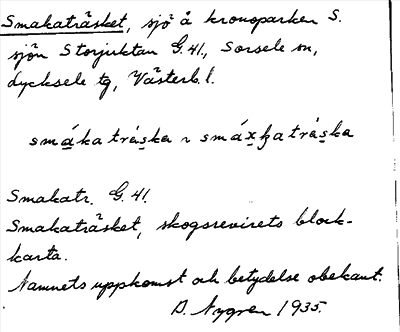 Smakaträsket, sjö å kronoparken S.
sjön Storjuktan G.41., Sorsele sn,
Lycksele tg, Västerb. l.
smákatráska ~ smáxkatráska
Smakatr. G.41.
Smakaträsket, skogsrevirets block-
karta.
Namnets uppkomst och betydelse obekant.
D. Nygren 1935.